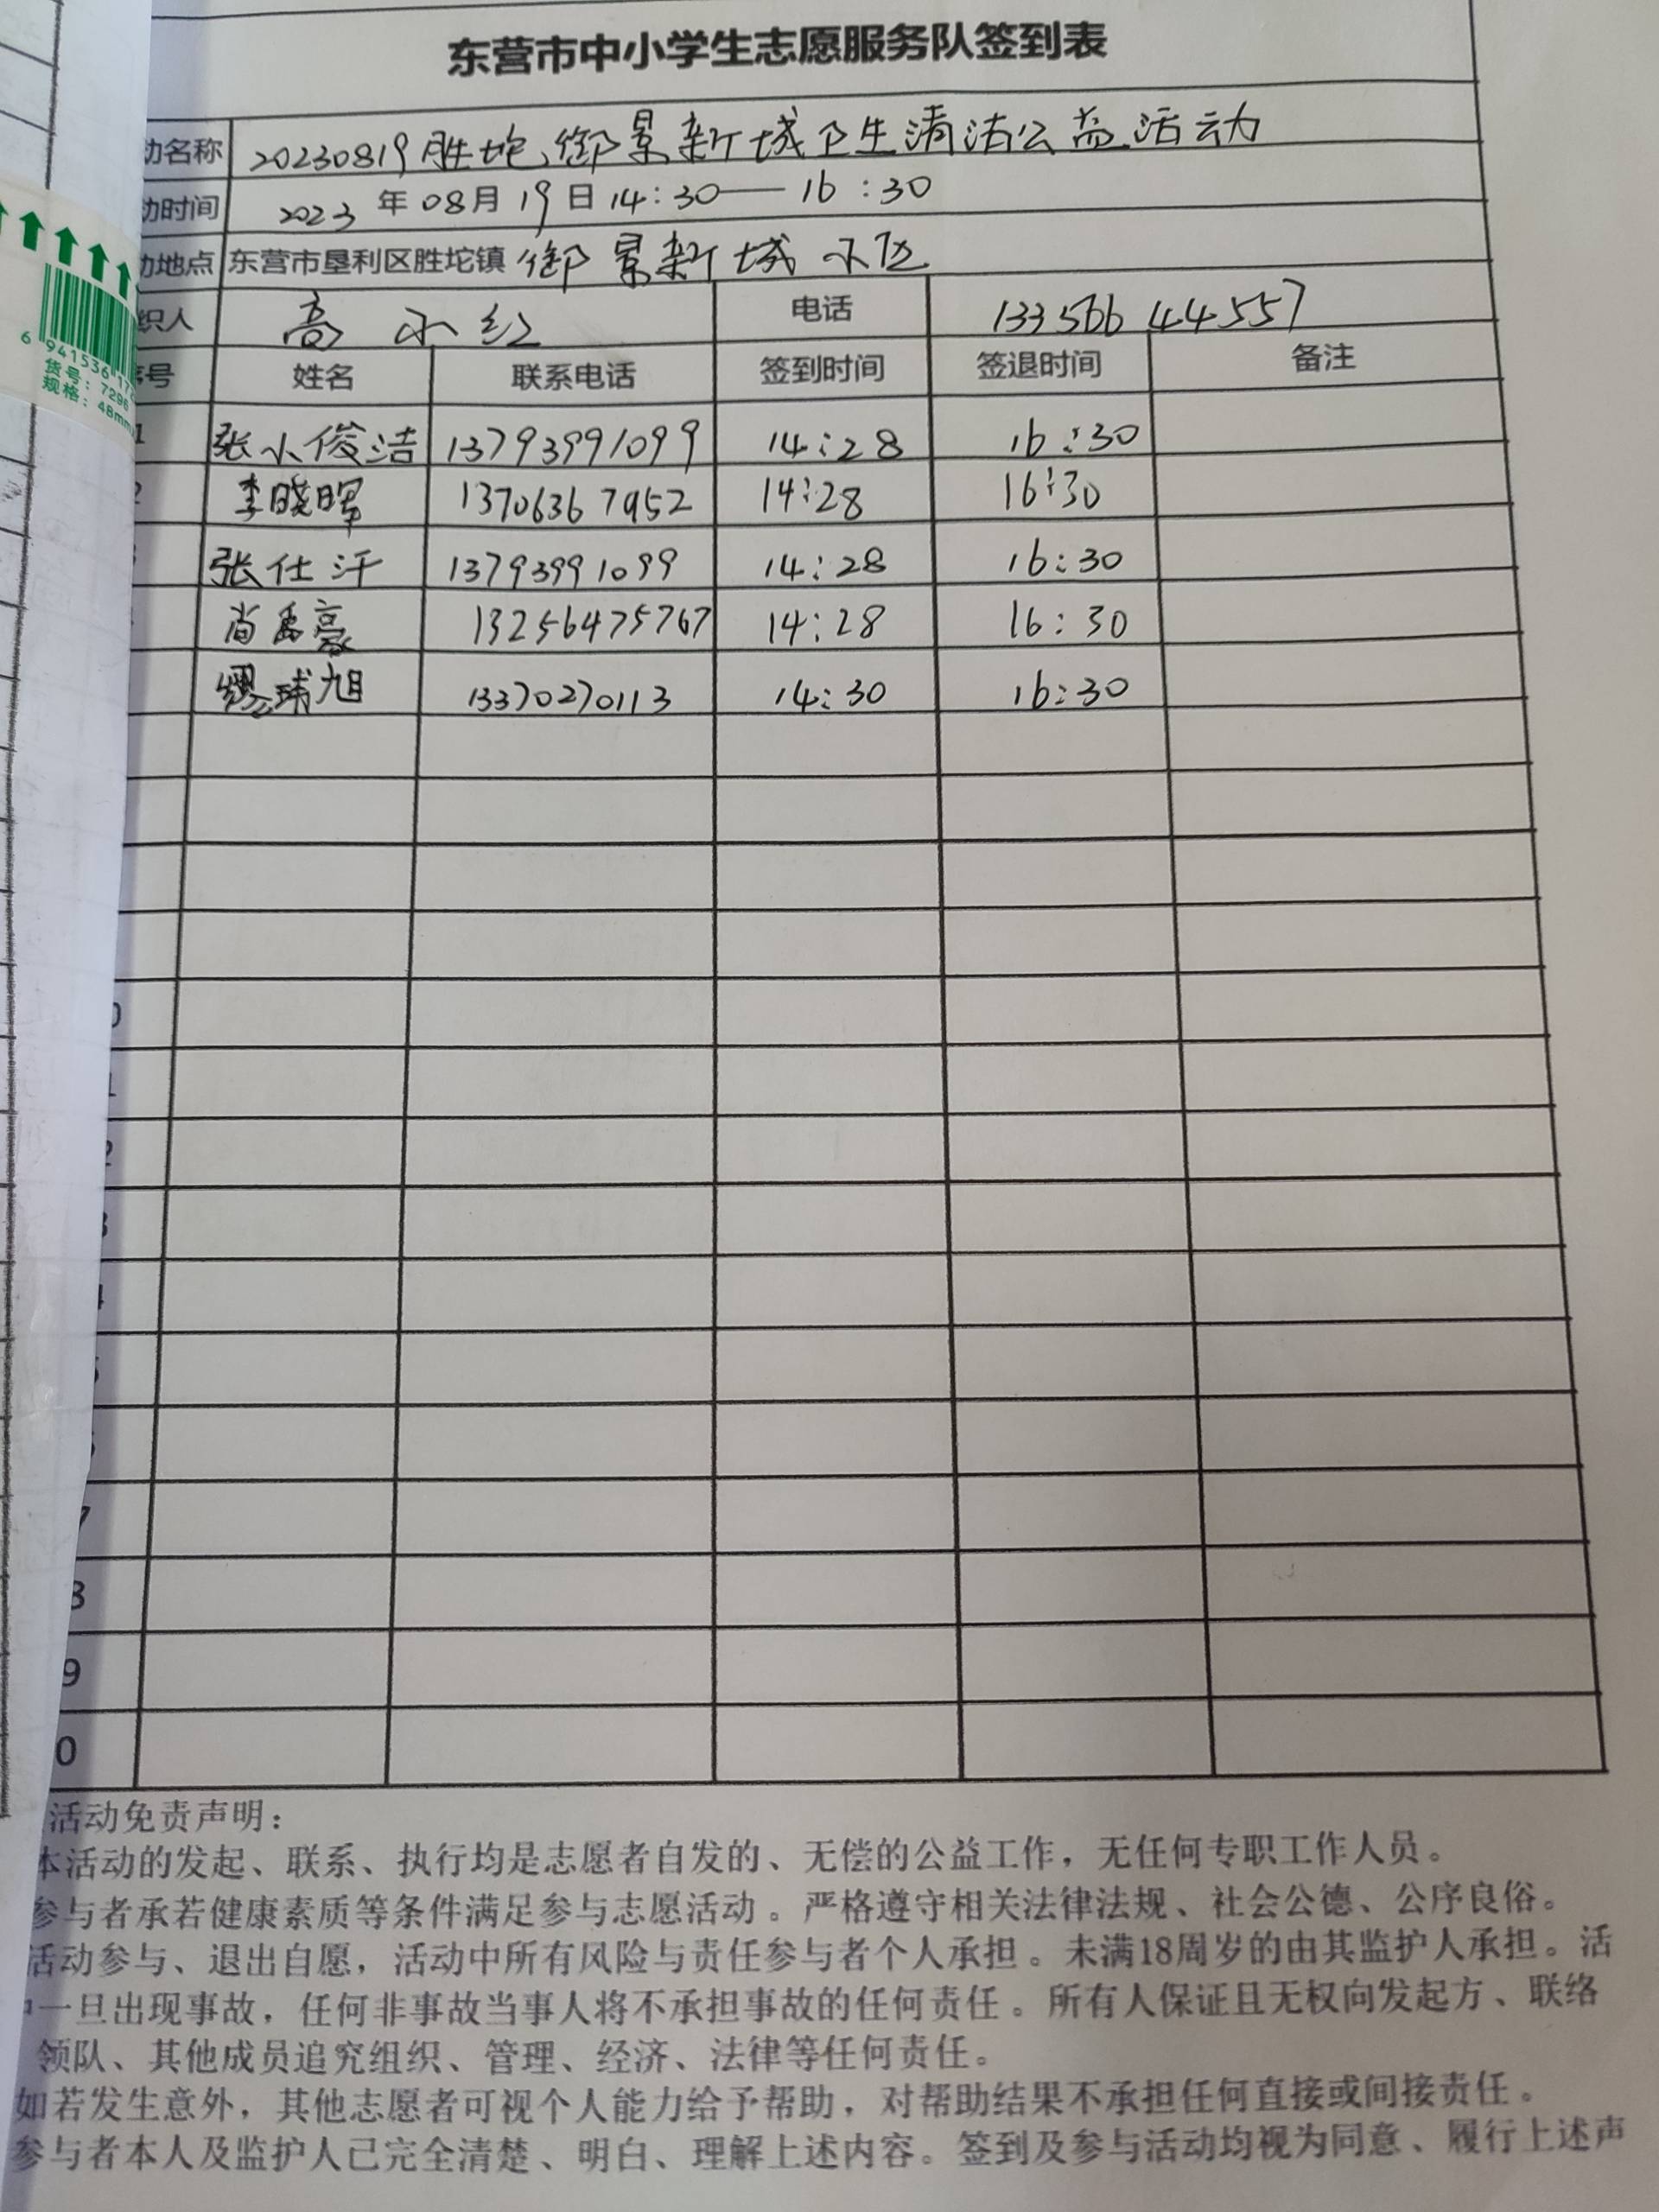 东营市中小学生志愿服务队签到表
动名称 20230819胜坨御景新城卫生清洁公益活动
动时间 2023年08月19日14:30——16:30
动地点 东营市垦利区胜坨镇御景新城小区
织人 高小红 电话 13356644557
序号 姓名 联系电话 签到时间 签退时间 备注
1 张小俊洁 13793991099 14:28 16:30
2 李晓晖 13706367952 14:28 16:30
3 张仕汗 13793991099 14:28 16:30
肖禹豪 13256475767 14:28 16:30
缪瑀旭 13370270113 14:30 16:30
0
1
2
3
4
5
6
7
8
9
0
活动免责声明：
本活动的发起、联系、执行均是志愿者自发的、无偿的公益工作，无任何专职工作人员。
参与者承若健康素质等条件满足参与志愿活动。严格遵守相关法律法规、社会公德、公序良俗。
活动参与、退出自愿，活动中所有风险与责任参与者个人承担。未满18周岁的由其监护人承担。活
中一旦出现事故，任何非事故当事人将不承担事故的任何责任。所有人保证且无权向发起方、联络
领队、其他成员追究组织、管理、经济、法律等任何责任。
如若发生意外，其他志愿者可视个人能力给予帮助，对帮助结果不承担任何直接或间接责任。
参与者本人及监护人已完全清楚、明白、理解上述内容。签到及参与活动均视为同意、履行上述声
6 941536 17
货号：7296
规格：48mm